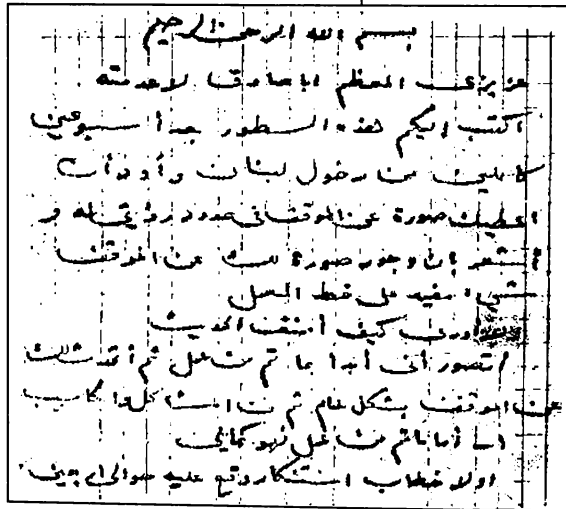 بسم الله الرحمن الرحيم
عزيزي المعظم ابا صادق لا عدمته
اكتب إليكم هذه السطور بعد أسبوعين
كاملين من دخول لبنان وأود أن
اعطيك صورة عن الموقف في حدود رؤيتي له و
بأن وجود صورة لديك عن الموقف
شيء مفيد على خط العمل
أدري كيف أصنف الحديث
أتصور أني أبدأ بما تم من عمل ثم أتحدث لك
عن الموقف بشكل عام ثم المشاكل والمكاسب
أما ما تم من عمل فهو كالآتي
اولا خطاب استنكار وقع عليه حوالي اربعين